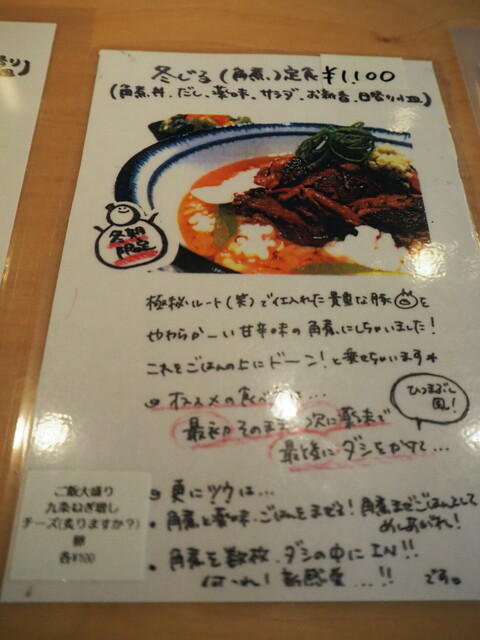 冬じる(角煮)定食 ¥1,100
(角煮丼、だし、薬味、サラダ、お新香、日替り小皿)
冬期
限定
極秘ルート(笑)で仕入れた貴重な豚を
やわらかーい甘辛味の角煮にしちゃいました!
これをごはんの上にドーン!と乗せちゃいます
オススメの食べ方は…
ひつまぶし
風!
最初そのまま 次に薬味で
最後にダシをかけて…
更にツウは…
角煮と薬味、ごはんをまぜる! 角煮まぜごはんとして
めしあがれ!
角煮を数枚、ダシの中にIN!!
何これ!新感覚…!! です。
ご飯大盛り
九条ねぎ増し
チーズ(炙りますか?)
卵
各¥100